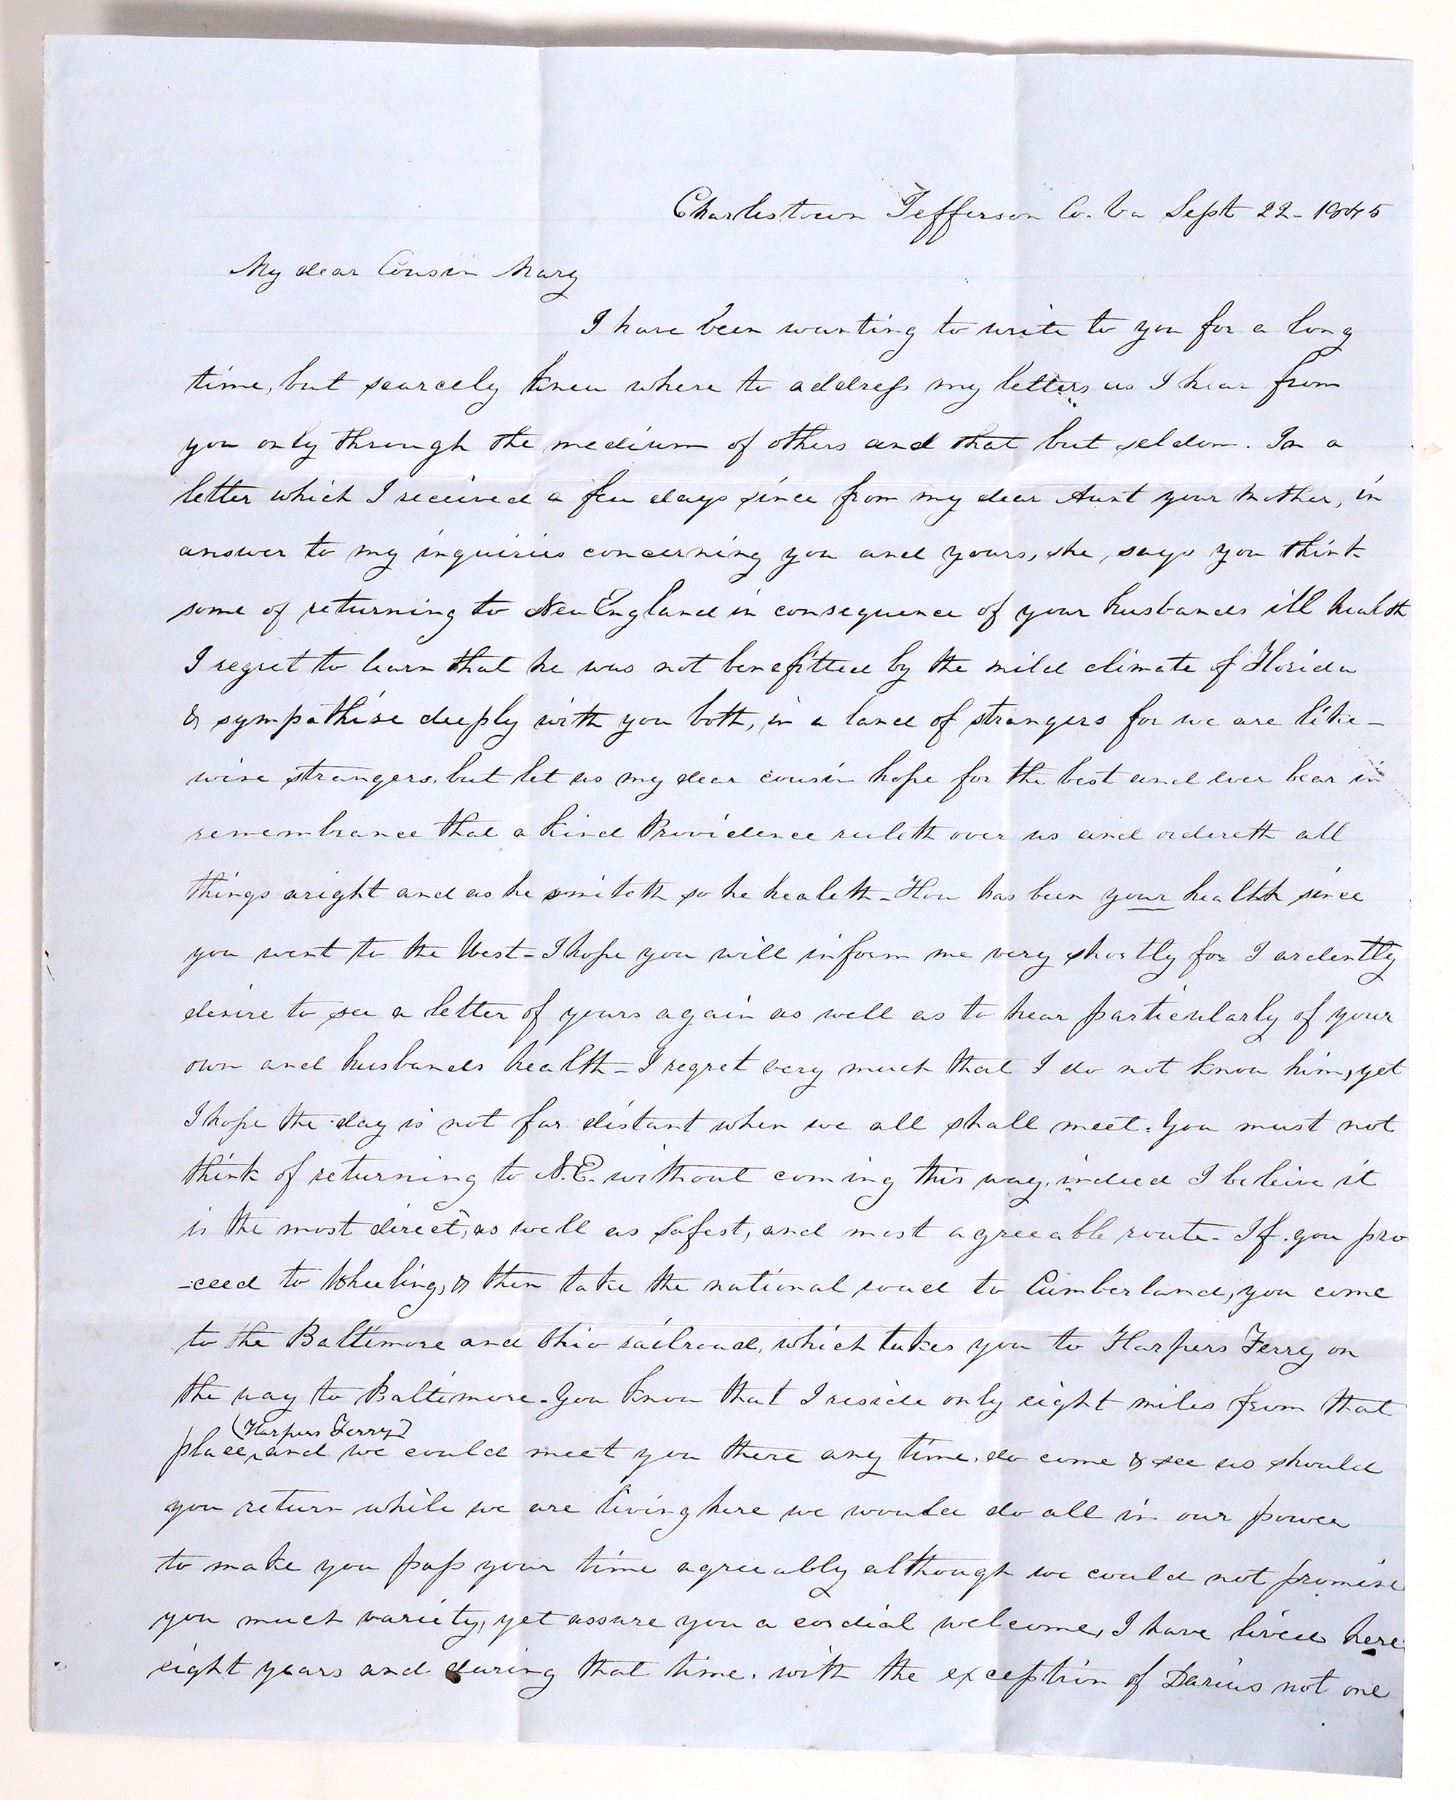 Charlestown Jefferson Co. Va Sept 22 - 1845
My dear Cousin Mary
I have been wanting to write to you for a long
time, but scarcely knew where to address my letters as I hear from
you only through the medium of others and that but seldom. In a
letter which I received a few days since from my dear Aunt your mother, in
answer to my inquiries concerning you and yours, she, says you think
some of returning to New England in consequence of your husbands ill health
I regret to learn that he was not benefitted by the mild climate of Florida
& sympathise deeply with you both, in a land of strangers for we are like-
wise strangers, but let us my dear cousin hope for the best and ever bear in
remembrance that a kind Providence ruleth over us and ordereth all
things aright and as he smiteth so he healeth - How has been your health since
you went to the West - I hope you will inform me very shortly for I ardently
desire to see a letter of yours again as well as to hear particularly of your
own and husbands health - I regret very much that I do not know him, yet
I hope the day is not far distant when we all shall meet. You must not
think of returning to N.E. without coming this way, indeed I beleive it
is the most direct, as well as safest, and most agreeable route - If you pro
-ceed to Wheeling, & then take the national road to Cumberland, you come
to the Baltimore and Ohio railroad, which takes you to Harpers Ferry on
the way to Baltimore - You know that I reside only eight miles from that
(Harpers Ferry)
place, and we could meet you there any time, do come & see us should
you return while we are living here we would do all in our power
to make you pass your time agreeably although we could not promise
you much variety, yet assure you a cordial welcome, I have lived here
eight years and during that time, with the exception of Darius not one